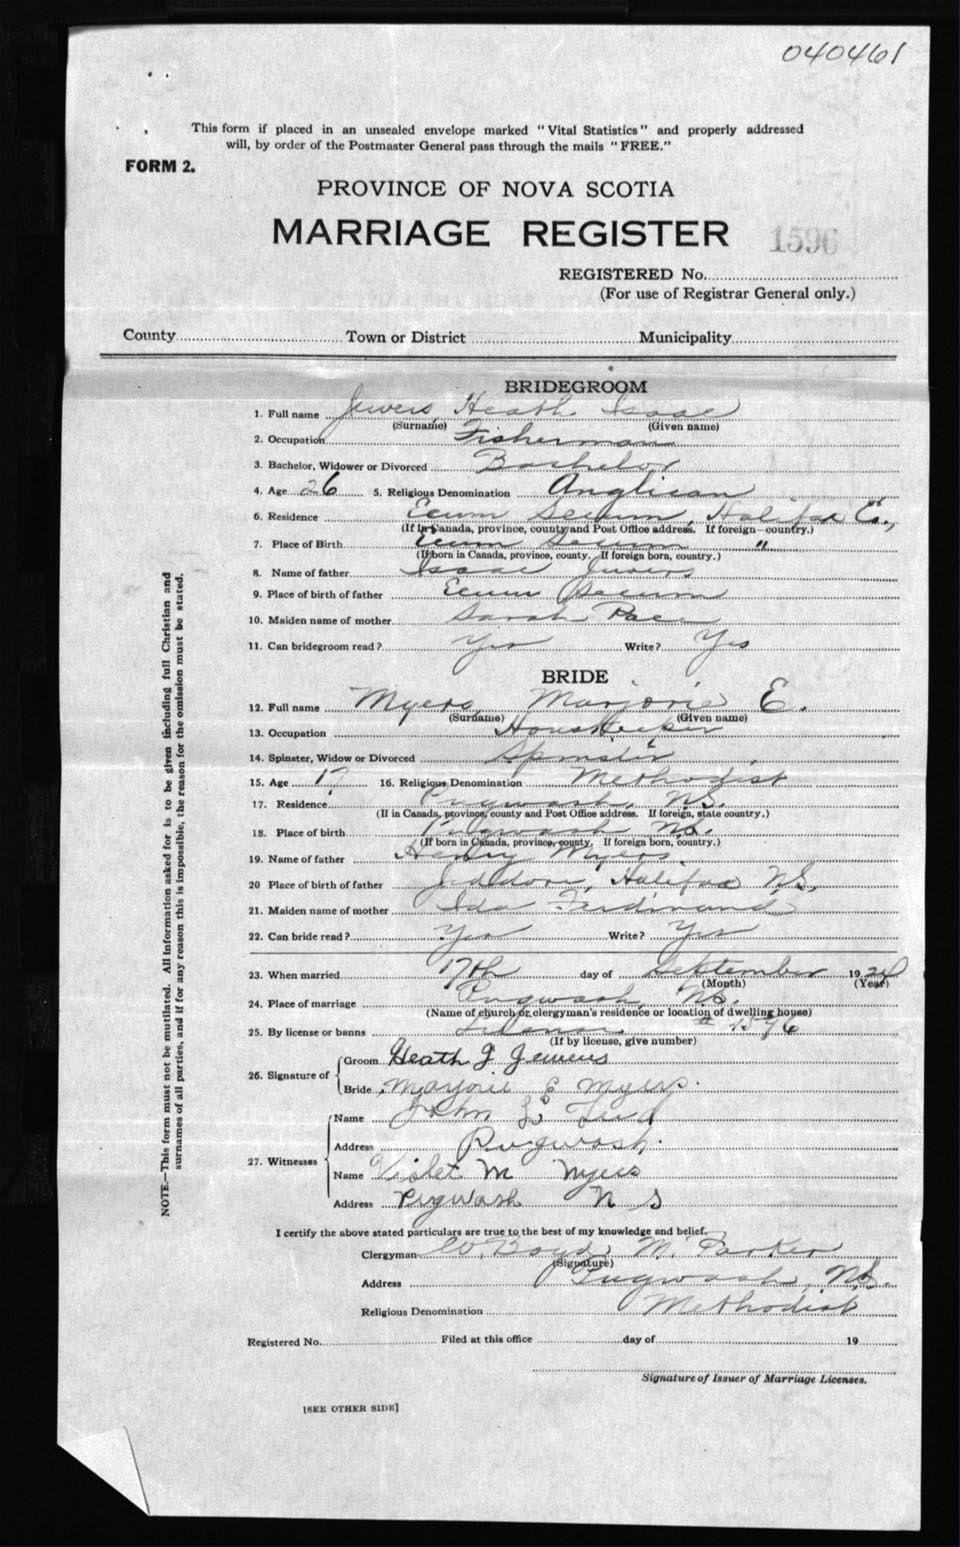 040461
This form if placed in an unsealed envelope marked "Vital Statistics" and properly addressed
will, by order of the Postmaster General pass through the mails "FREE."
FORM 2.
PROVINCE OF NOVA SCOTIA
MARRIAGE REGISTER 1596
REGISTERED No.
(For use of Registrar General only.)
County Town or District Municipality
BRIDEGROOM
1. Full name Jewers, Heath Isaac
(Surname) (Given name)
2. Occupation Fisherman
3. Bachelor, Widower or Divorced Bachelor
4. Age 26 5. Religious Denomination Anglican
6. Residence Ecum Secum, Halifax Co.,
(If in Canada, province, county and Post Office address. If foreign country.)
7. Place of Birth Ecum Secum "
(If born in Canada, province, county. If foreign born, country.)
8. Name of father Isaac Jewers
9. Place of birth of father Ecum Secum
10. Maiden name of mother Sarah Pace
11. Can bridegroom read? Yes Write? Yes
BRIDE
12. Full name Myers, Marjorie E.
(Surname) (Given name)
13. Occupation Housekeeper
14. Spinster, Widow or Divorced Spinster
15. Age 16. Religious Denomination Methodist
17. Residence Pugwash, N.S.
(If in Canada, province, county and Post Office address. If foreign, state country.)
18. Place of birth Pugwash N.S.
(If born in Canada, province, county. If foreign born, country.)
19. Name of father Henry Myers
20 Place of birth of father Jeddore, Halifax N.S.
21. Maiden name of mother Ida Ferdinand
22. Can bride read? Yes Write? Yes
23. When married 17th day of September 1924
(Month) (Year)
24. Place of marriage Pugwash, N.S.
(Name of church or clergyman's residence or location of dwelling house)
25. By license or banns License # 1596
(If by license, give number)
26. Signature of Groom Heath I Jewers
Bride Marjorie E Myers.
27. Witnesses Name John
Address Pugwash.
Name Violet M Myers
Address Pugwash N S
I certify the above stated particulars are true to the best of my knowledge and belief.
Clergyman W. Boyd M. Parker
(Signature)
Address Pugwash, N.S.
Religious Denomination Methodist
Registered No. Filed at this office day of 19
Signature of Issuer of Marriage Licenses.
[SEE OTHER SIDE]
NOTE.—This form must not be mutilated. All information asked for is to be given including full Christian and
surnames of all parties, and if for any reason this is impossible, the reason for the omission must be stated.